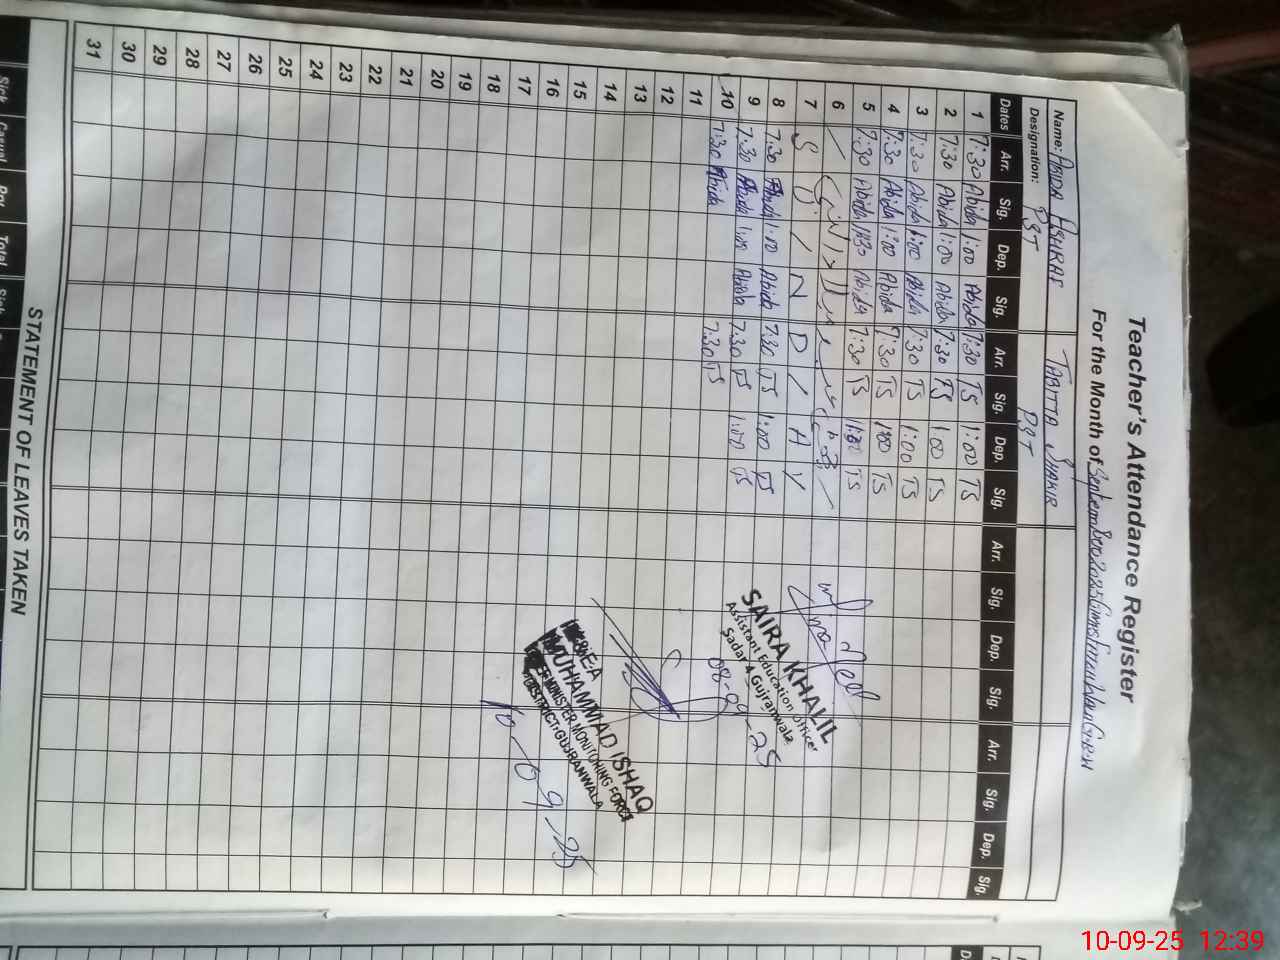 Teacher's Attendance Register
For the Month of September 2025
Name: ABIDA ASHRAF TABITTA SHAKIR
Designation: PST PST
Dates Arr. Sig. Dep. Sig. Arr. Sig. Dep. Sig. Arr. Sig. Dep. Sig. Arr. Sig. Dep. Sig.
1 7:30 Abida 1:00 Abida 7:30 TS 1:00 TS
2 7:30 Abida 1:00 Abida 7:30 TS 1:00 TS
3 7:30 Abida 1:00 Abida 7:30 TS 1:00 TS
4 7:30 Abida 1:00 Abida 7:30 TS 1:00 TS
5 7:30 Abida Abida 7:30 TS TS
6
7 S U / N D / A Y
8 7:30 Abida 1:00 Abida 7:30 TS 1:00 TS
9 7:30 Abida 1:00 Abida 7:30 TS 1:00 TS
10 7:30 Abida 7:30 TS
11
12
13
14
15
16
17
18
19
20
21
22
23
24
25
26
27
28
29
30
31
SAIRA KHALIL
Assistant Education Officer
Sadar 4 Gujranwala
08-09-25
MEA
MUHAMMAD ISHAQ
MONITORING FORCE
DISTRICT: GUJRANWALA
10-09-25
STATEMENT OF LEAVES TAKEN
Sick Casual Total
10-09-25 12:39